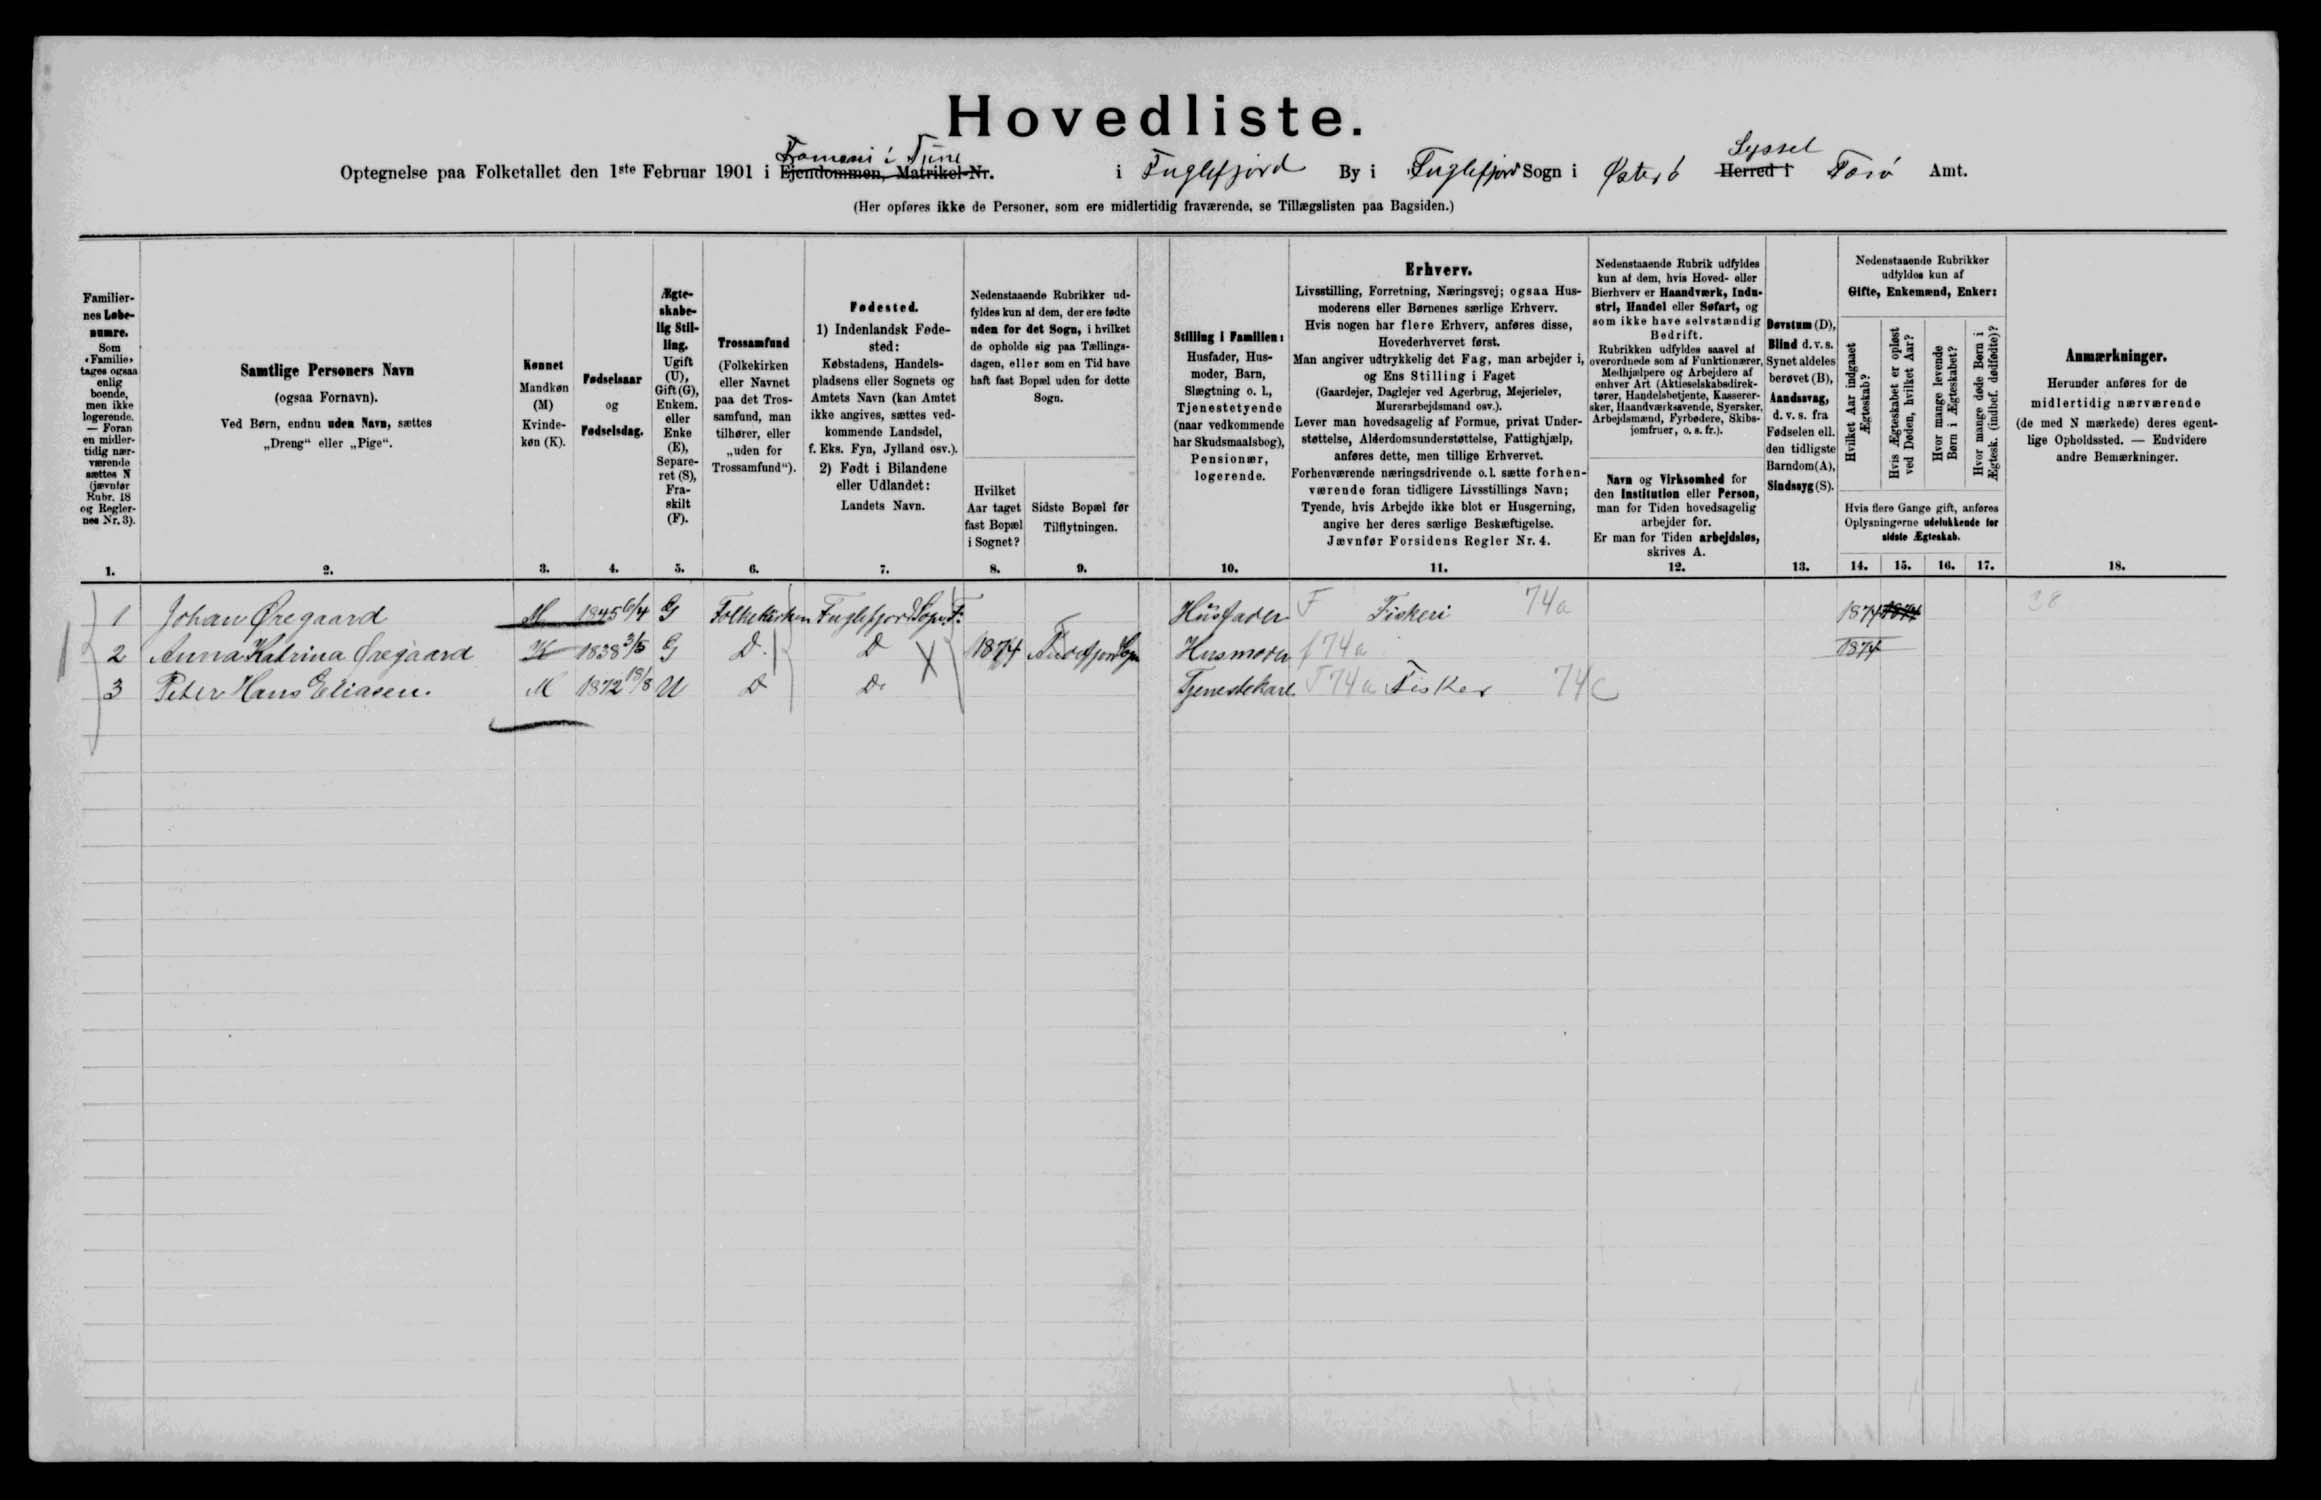 Hovedliste.
i Tune Lyssel
Optegnelse paa Folketallet den 1ste Februar 1901 i Ejendommen, Matrikel-Nr. i Fuglefjord By i Fuglefjord Sogn i Østerö Herred i Færö Amt.
(Her opføres ikke de Personer, som ere midlertidig fraværende, se Tillægslisten paa Bagsiden.)
Familier-
nes Løbe-
numre.
Som
«Familie»
tages ogsaa
enlig
boende,
men ikke
logerende.
— Foran
en midler-
tidig nær-
værende
sættes N
(jævnfør
Rubr. 18
og Regler-
nes Nr. 3).
1.
Samtlige Personers Navn
(ogsaa Fornavn).
Ved Børn, endnu uden Navn, sættes
„Dreng“ eller „Pige“.
2.
Kønnet
Mandkøn
(M)
Kvinde-
køn (K).
3.
Fødselsaar
og
Fødselsdag.
4.
Ægte-
skabe-
lig Stil-
ling.
Ugift
(U),
Gift (G),
Enkem.
eller
Enke
(E),
Separe-
ret (S),
Fra-
skilt
(F).
5.
Trossamfund
(Folkekirken
eller Navnet
paa det Tros-
samfund, man
tilhører, eller
„uden for
Trossamfund“).
6.
Fødested.
1) Indenlandsk Føde-
sted:
Købstadens, Handels-
pladsens eller Sognets og
Amtets Navn (kan Amtet
ikke angives, sættes ved-
kommende Landsdel,
f. Eks. Fyn, Jylland osv.).
2) Født i Bilandene
eller Udlandet:
Landets Navn.
7.
Nedenstaaende Rubrikker ud-
fyldes kun af dem, der ere fødte
uden for det Sogn, i hvilket
de opholde sig paa Tællings-
dagen, eller som en Tid have
haft fast Bopæl uden for dette
Sogn.
Hvilket
Aar taget
fast Bopæl
i Sognet?
8.
Sidste Bopæl før
Tilflytningen.
9.
Stilling i Familien:
Husfader, Hus-
moder, Barn,
Slægtning o. l.,
Tjenestetyende
(naar vedkommende
har Skudsmaalsbog),
Pensionær,
logerende.
10.
Erhverv.
Livsstilling, Forretning, Næringsvej; ogsaa Hus-
moderens eller Børnenes særlige Erhverv.
Hvis nogen har flere Erhverv, anføres disse,
Hovederhvervet først.
Man angiver udtrykkelig det Fag, man arbejder i,
og Ens Stilling i Faget
(Gaardejer, Daglejer ved Agerbrug, Mejerielev,
Murerarbejdsmand osv.).
Lever man hovedsagelig af Formue, privat Under-
støttelse, Alderdomsunderstøttelse, Fattighjælp,
anføres dette, men tillige Erhvervet.
Forhenværende næringsdrivende o. l. sætte forhen-
værende foran tidligere Livsstillings Navn;
Tyende, hvis Arbejde ikke blot er Husgerning,
angive her deres særlige Beskæftigelse.
Jævnfør Forsidens Regler Nr. 4.
11.
Nedenstaaende Rubrik udfyldes
kun af dem, hvis Hoved- eller
Bierhverv er Haandværk, Indu-
stri, Handel eller Søfart, og
som ikke have selvstændig
Bedrift.
Rubrikken udfyldes saavel af
overordnede som af Funktionærer,
Medhjælpere og Arbejdere af
enhver Art (Aktieselskabsdirek-
tører, Handelsbetjente, Kasserer-
sker, Haandværkssvende, Syersker,
Arbejdsmænd, Fyrbødere, Skibs-
jomfruer, o. s. fr.).
Navn og Virksomhed for
den Institution eller Person,
man for Tiden hovedsagelig
arbejder for.
Er man for Tiden arbejdsløs,
skrives A.
12.
Døvstum (D),
Blind d. v. s.
Synet aldeles
berøvet (B),
Aandssvag,
d. v. s. fra
Fødselen ell.
den tidligste
Barndom (A),
Sindssyg (S).
13.
Nedenstaaende Rubrikker
udfyldes kun af
Gifte, Enkemænd, Enker:
Hvilket Aar indgaaet
Ægteskab?
Hvis Ægteskabet er opløst
ved Døden, hvilket Aar?
Hvor mange levende
Børn i Ægteskabet?
Hvor mange døde Børn i
Ægtesk. (indbef. dødfødte)?
Hvis flere Gange gift, anføres
Oplysningerne udelukkende for
sidste Ægteskab.
14. 15. 16. 17.
Anmærkninger.
Herunder anføres for de
midlertidig nærværende
(de med N mærkede) deres egent-
lige Opholdssted. — Endvidere
andre Bemærkninger.
18.
1 Johan Øregaard M 1845 6/4 G Folkekirken Fuglefjord Sogn F. Husfader F Fiskeri 74a 1874 1874 38
2 Anna Katrina Øregaard K 1838 3/5 G D. D X 1874 Husmoder f 74a 1874
3 Peter Hans Eliasen. M 1872 18/8 U D D. Tjenestekarl F 74a Fisker 74c